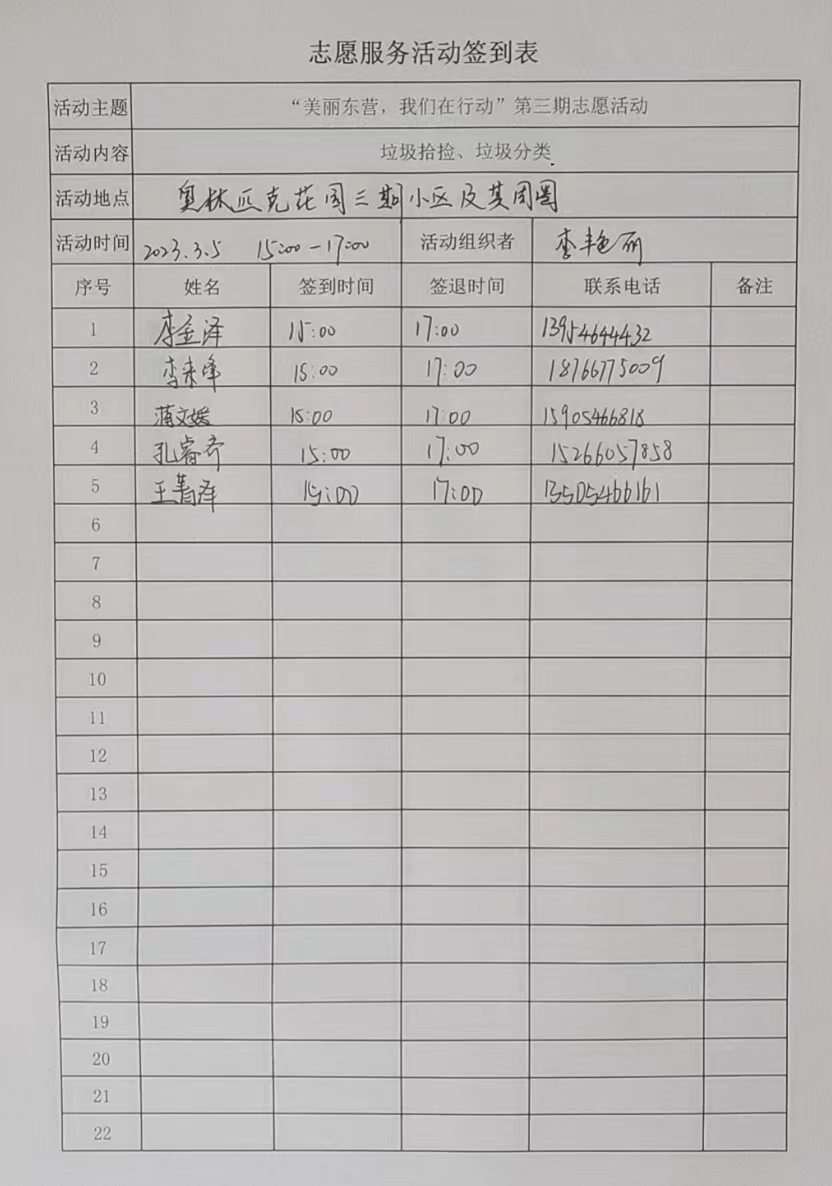 志愿服务活动签到表
活动主题 “美丽东营，我们在行动”第三期志愿活动
活动内容 垃圾拾捡、垃圾分类
活动地点 奥林匹克花园三期小区及其周围
活动时间 2023.3.5 15:00-17:00 活动组织者 李艳丽
序号 姓名 签到时间 签退时间 联系电话 备注
1 李金泽 15:00 17:00 13954644432
2 李来峰 15:00 17:00 18766775009
3 蒲文媛 15:00 17:00 15905466818
4 孔睿齐 15:00 17:00 15266057858
5 王菁泽 15:00 17:00 13505466161
6
7
8
9
10
11
12
13
14
15
16
17
18
19
20
21
22